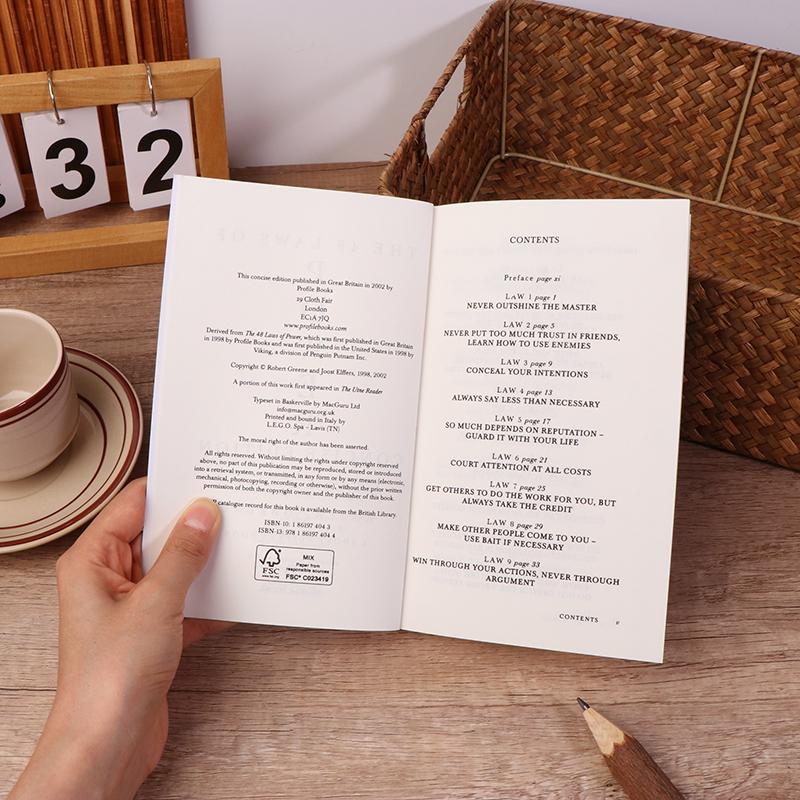 3
2
This concise edition published in Great Britain in 2002 by
Profile Books
29 Cloth Fair
London
EC1A 7JQ
www.profilebooks.com
Derived from The 48 Laws of Power, which was first published in Great Britain
in 1998 by Profile Books and was first published in the United States in 1998 by
Viking, a division of Penguin Putnam Inc.
Copyright © Robert Greene and Joost Elffers, 1998, 2002
A portion of this work first appeared in The Utne Reader
Typeset in Baskerville by MacGuru Ltd
info@macguru.org.uk
Printed and bound in Italy by
L.E.G.O. Spa – Lavis (TN)
The moral right of the author has been asserted.
All rights reserved. Without limiting the rights under copyright reserved
above, no part of this publication may be reproduced, stored or introduced
into a retrieval system, or transmitted, in any form or by any means (electronic,
mechanical, photocopying, recording or otherwise), without the prior written
permission of both the copyright owner and the publisher of this book.
catalogue record for this book is available from the British Library.
ISBN-10: 1 86197 404 3
ISBN-13: 978 1 86197 404 4
FSC
www.fsc.org
MIX
Paper from
responsible sources
FSC® C023419
CONTENTS
Preface page xi
LAW 1 page 1
NEVER OUTSHINE THE MASTER
LAW 2 page 5
NEVER PUT TOO MUCH TRUST IN FRIENDS,
LEARN HOW TO USE ENEMIES
LAW 3 page 9
CONCEAL YOUR INTENTIONS
LAW 4 page 13
ALWAYS SAY LESS THAN NECESSARY
LAW 5 page 17
SO MUCH DEPENDS ON REPUTATION –
GUARD IT WITH YOUR LIFE
LAW 6 page 21
COURT ATTENTION AT ALL COSTS
LAW 7 page 25
GET OTHERS TO DO THE WORK FOR YOU, BUT
ALWAYS TAKE THE CREDIT
LAW 8 page 29
MAKE OTHER PEOPLE COME TO YOU –
USE BAIT IF NECESSARY
LAW 9 page 33
WIN THROUGH YOUR ACTIONS, NEVER THROUGH
ARGUMENT
CONTENTS